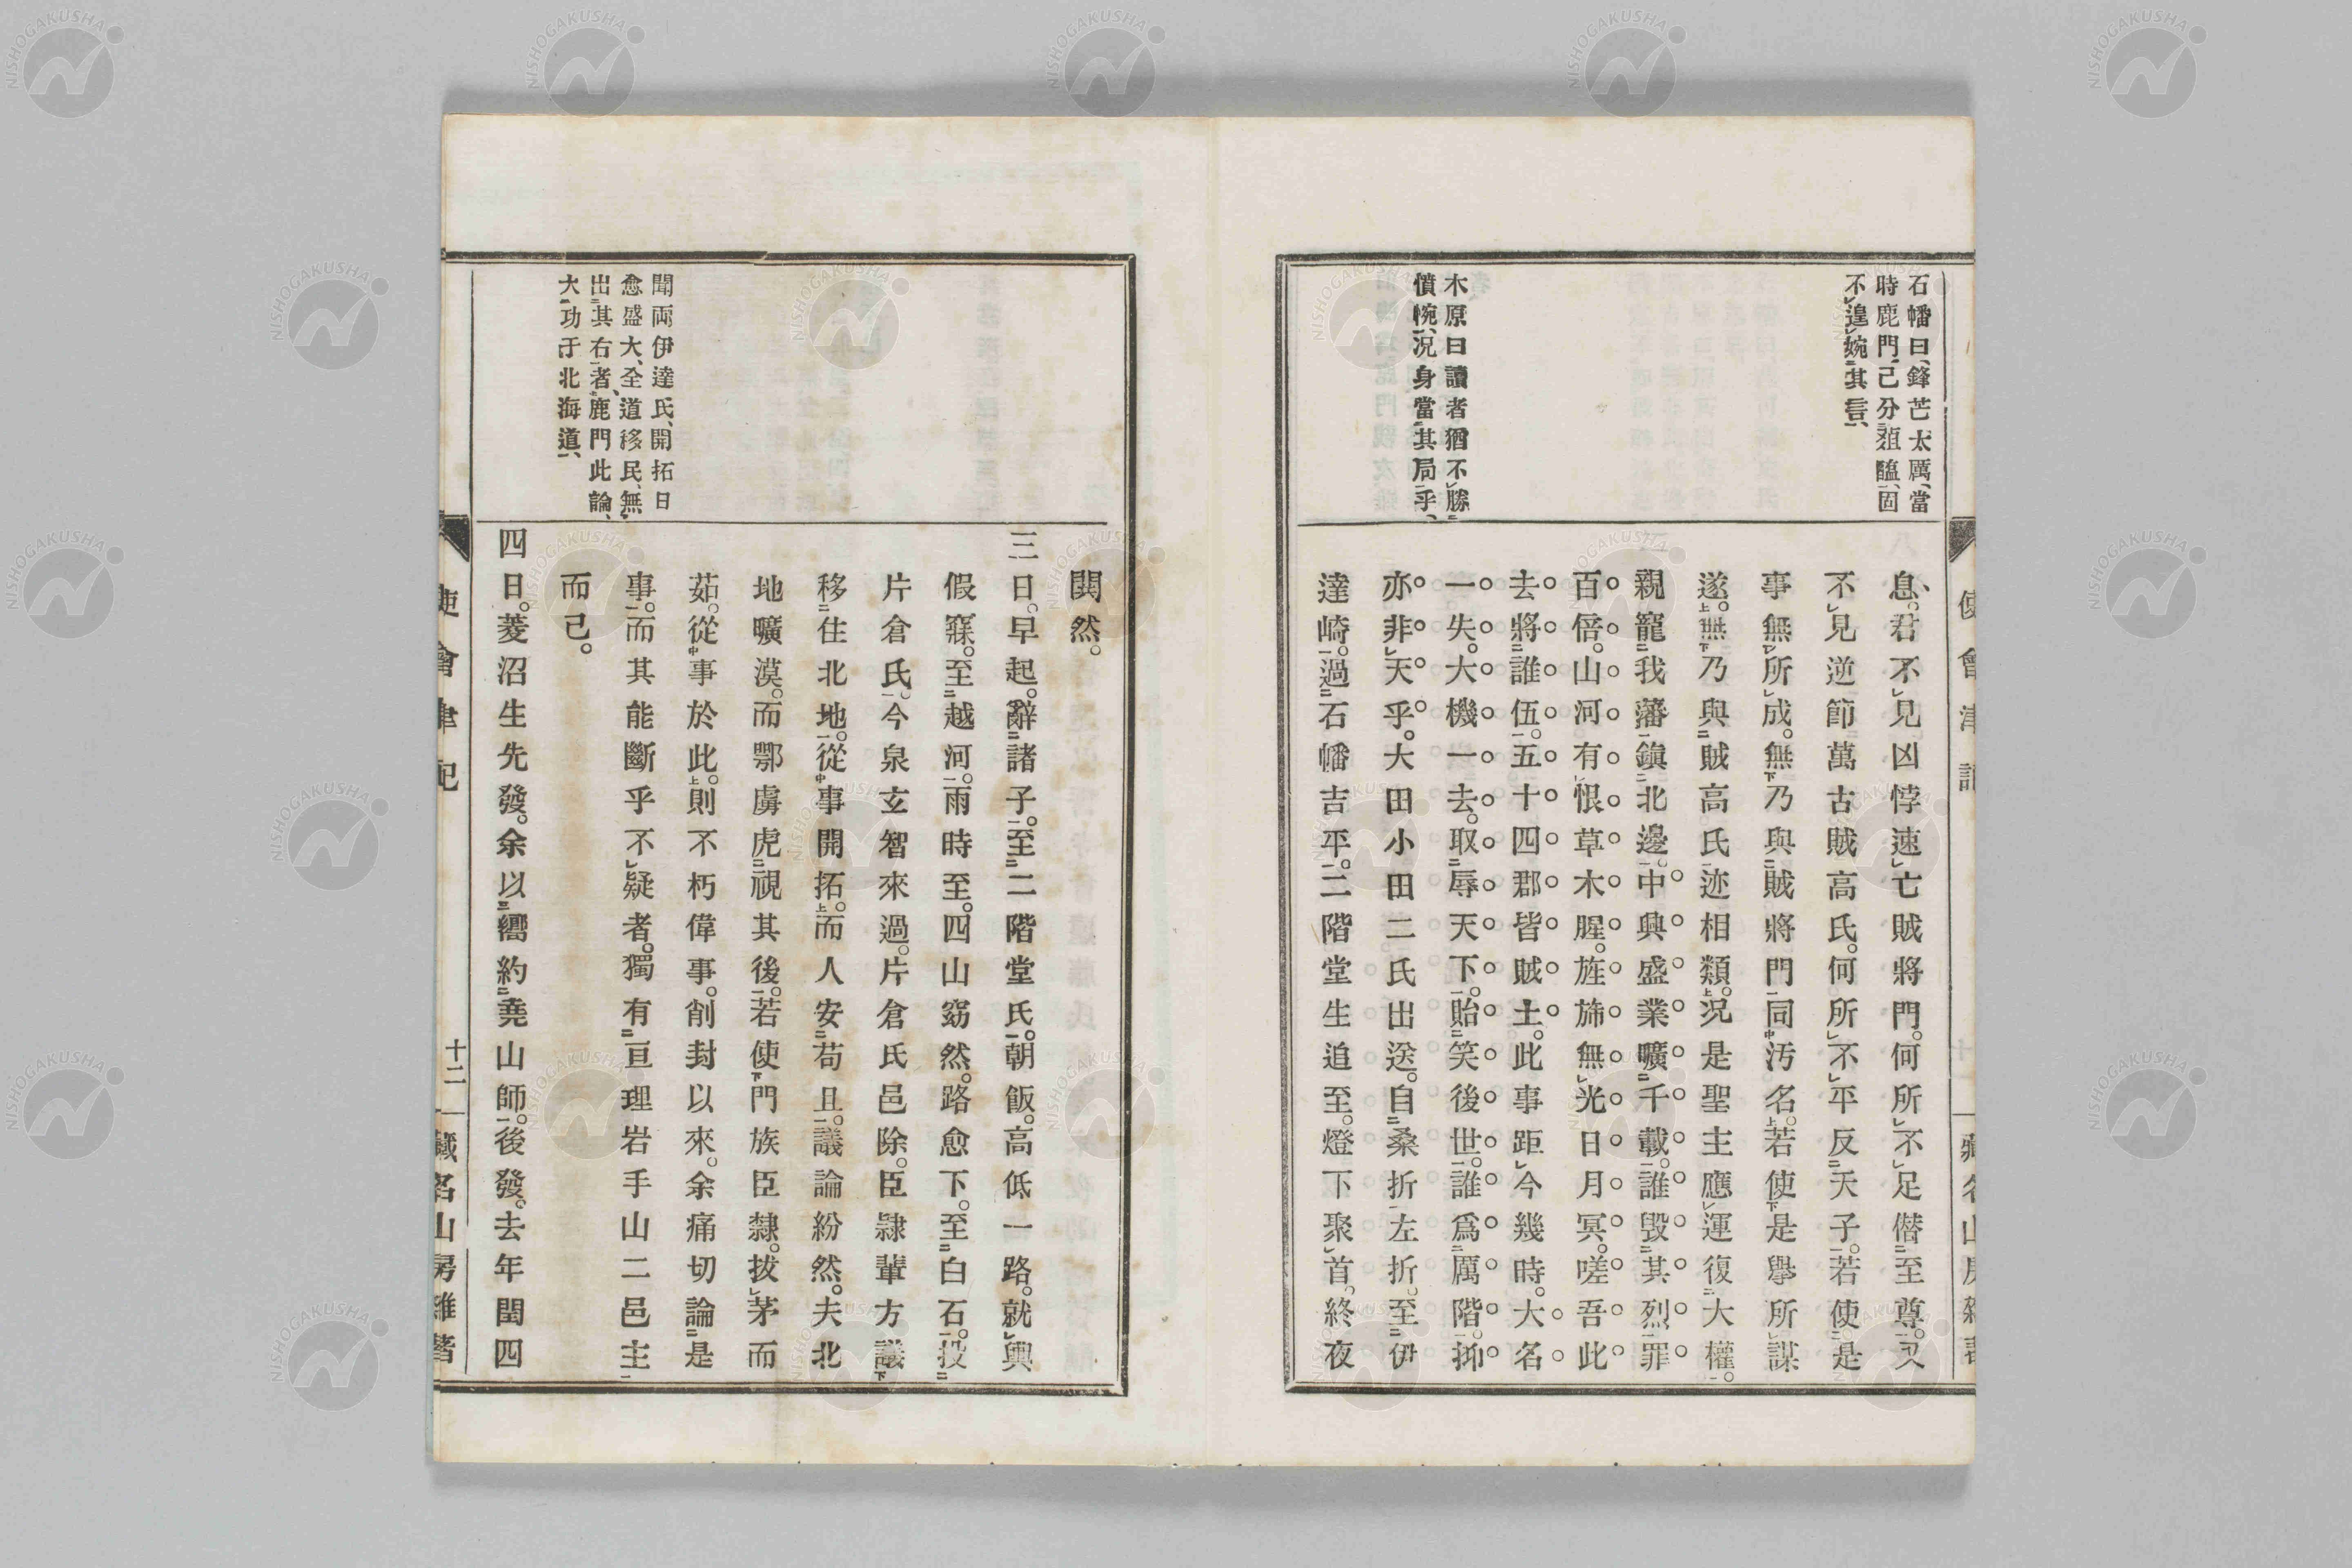 石幡曰、鋒芒太厲、當
時鹿門、已分菹醢、固
不遑婉其言、
木原曰讀者猶不勝
憤惋、況身當其局乎、
息。君不見凶悖速亡賊將門。何所不足僭至尊。又
不見逆節萬古賊高氏。何所不平反天子。若使是
事無所成。無乃與賊將門同汚名。若使是擧所謀
遂。無乃與賊高氏迹相類。況是聖主應運復大權。
親寵我藩鎭北邊。中興盛業曠千載。誰毀其烈罪
百倍。山河有恨草木腥。旌旆無光日月冥。嗟吾此
去將誰伍。五十四郡皆賊土。此事距今幾時。大名
一失。大機一去。取辱天下。貽笑後世。誰爲厲階。抑
亦非天乎。大田小田二氏出送。自桑折左折。至伊
達崎。過石幡吉平。二階堂生追至。燈下聚首。終夜
使會津記
藏名山房雜著
聞兩伊達氏、開拓日
愈盛大、全道移民、無
出其右者、鹿門此論、
大功于北海道、
鬨然。
三日。早起。辭諸子。至二階堂氏。朝飯。高低一路。就輿
假寐。至越河。雨時至。四山窈然。路愈下。至白石。投
片倉氏。今泉玄智來過。片倉氏邑除。臣隷輩方議
移住北地。從事開拓。而人安苟且。議論紛然。夫北
地曠漠。而鄂虜虎視其後。若使門族臣隸。拔茅而
茹。從事於此。則不朽偉事。削封以來。余痛切論是
事。而其能斷乎不疑者。獨有亘理岩手山二邑主
而已。
四日。菱沼生先發。余以嚮約堯山師。後發。去年閏四
使會津記
十二
藏名山房雜著